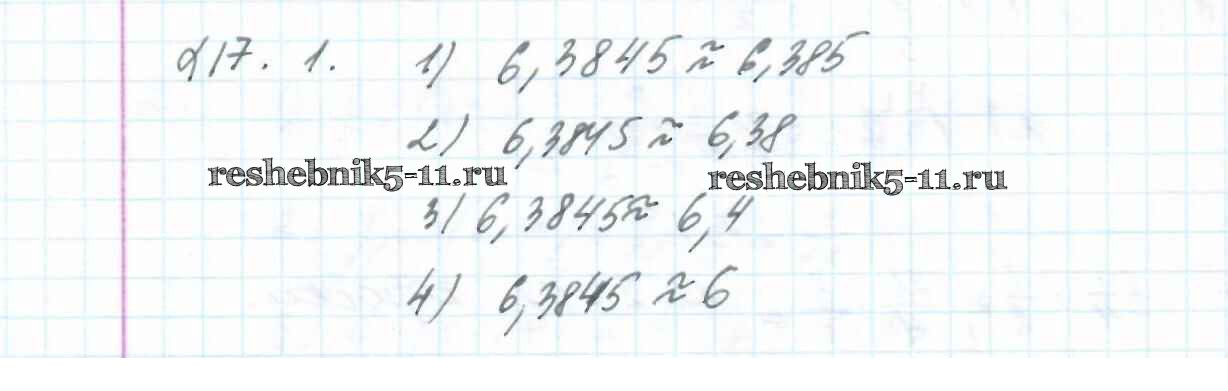 §17. 1. 1) 6,3845 ≈ 6,385
2) 6,3845 ≈ 6,38
reshebnik5-11.ru reshebnik5-11.ru
3) 6,3845 ≈ 6,4
4) 6,3845 ≈ 6